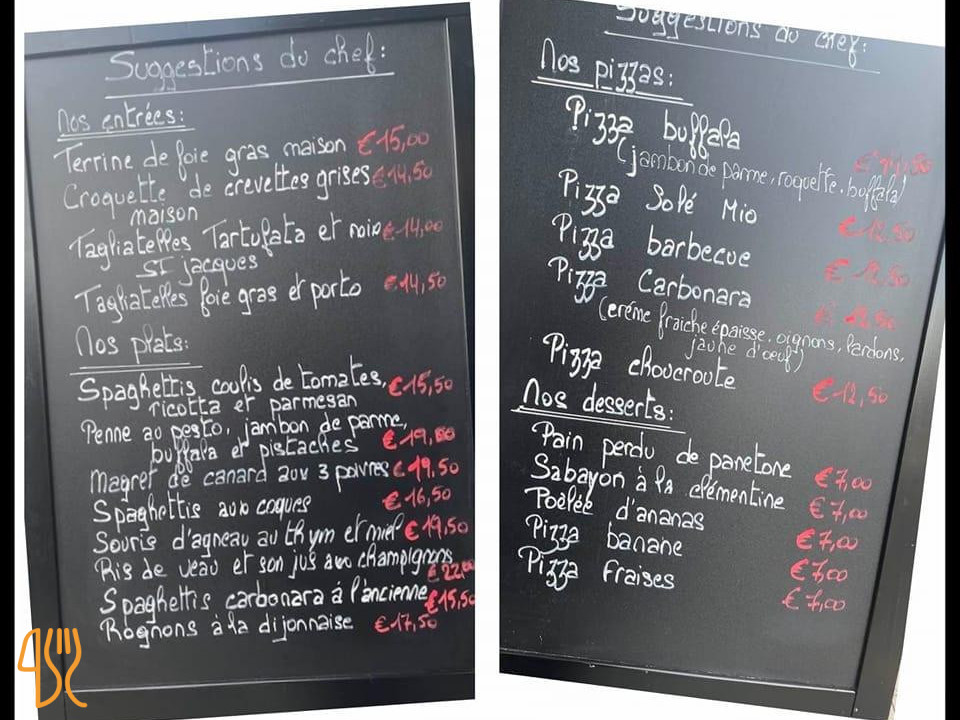 Suggestions du chef:
Nos entrées:
Terrine de foie gras maison €15,00
Croquette de crevettes grises €14,50
maison
Tagliatelles Tartufata et noix €14,00
St jacques
Tagliatelles foie gras et porto €14,50
Nos plats:
Spaghettis coulis de tomates, €15,50
ricotta et parmesan
Penne au pesto, jambon de parme,
buffala et pistaches €19,00
Magret de canard aux 3 poivres €19,50
Spaghettis aux coques €16,50
Souris d'agneau au thym et miel €19,50
Ris de veau et son jus aux champignons
€22,00
Spaghettis carbonara à l'ancienne €15,50
Rognons à la dijonnaise €17,50
Suggestions du chef:
Nos pizzas:
Pizza buffala
(jambon de parme, roquette, buffala)
Pizza Solé Mio €12,50
Pizza barbecue €12,50
Pizza Carbonara €12,50
(crème fraiche épaisse, oignons, lardons,
jaune d'œuf)
Pizza choucroute €12,50
Nos desserts:
Pain perdu de panetone €7,00
Sabayon à la clémentine €7,00
Poêlée d'ananas €7,00
Pizza banane €7,00
Pizza fraises €7,00